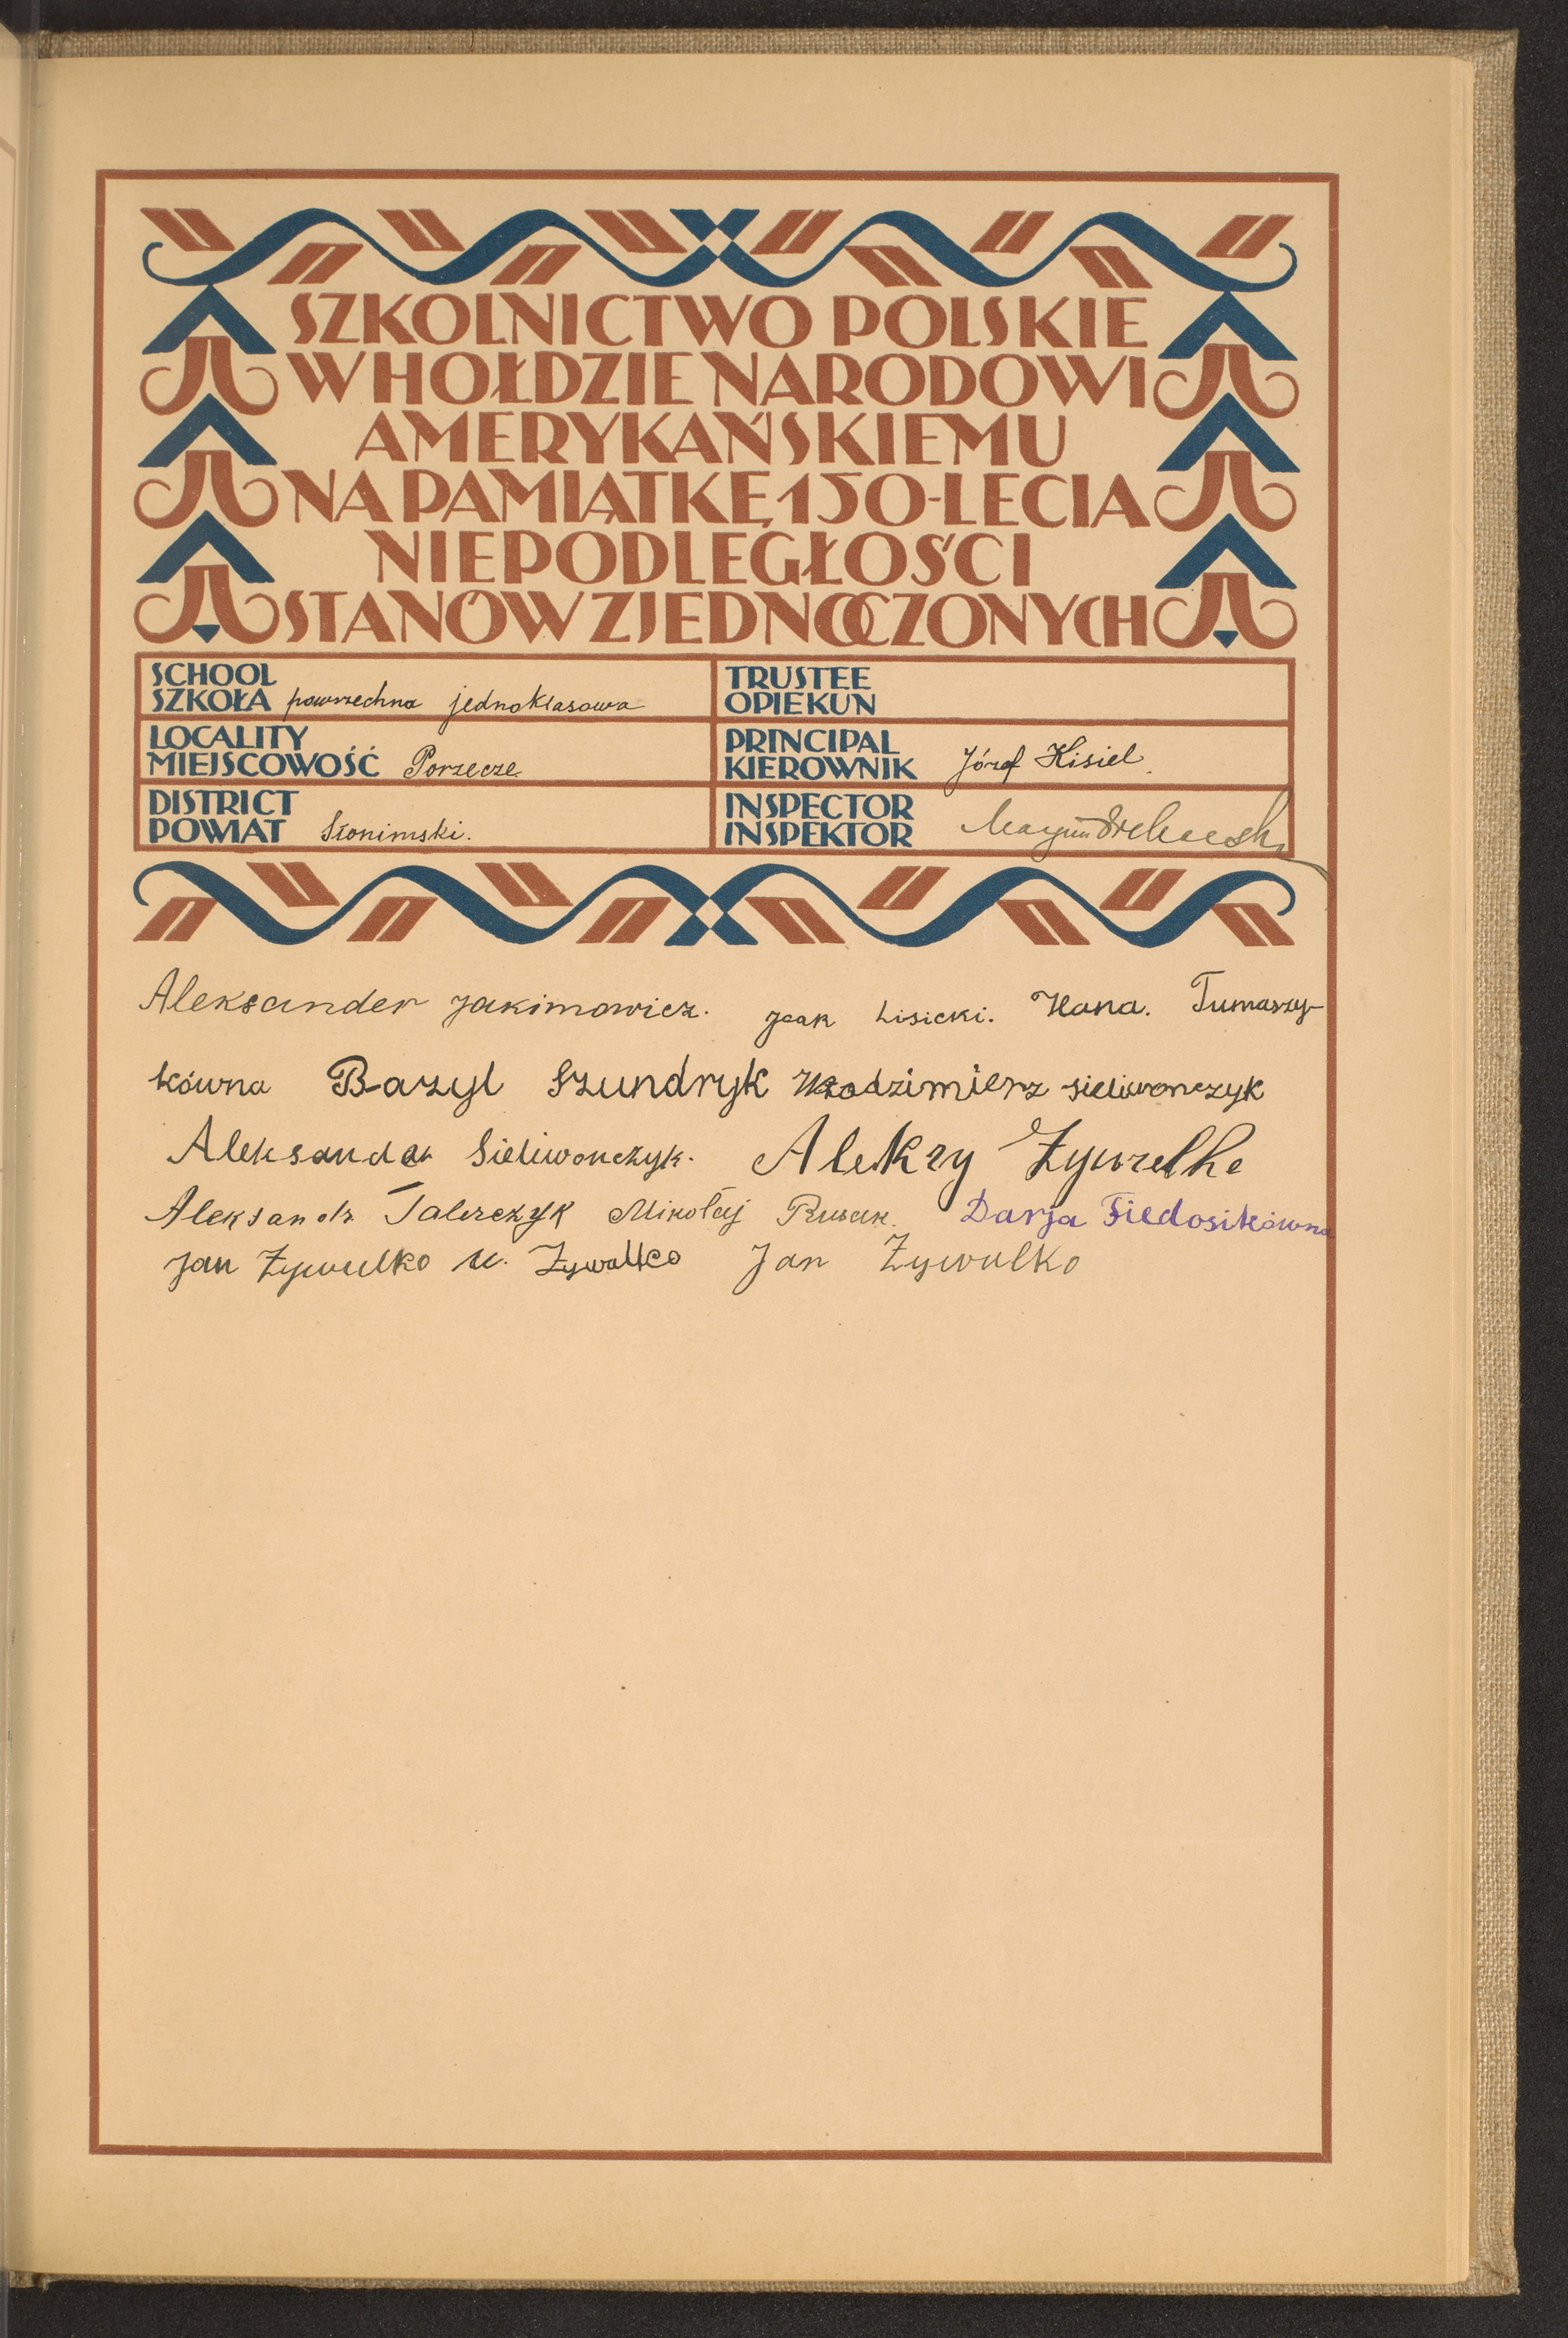 SZKOLNICTWO POLSKIE
W HOŁDZIE NARODOWI
AMERYKAŃSKIEMU
NA PAMIĄTKĘ 150-LECIA
NIEPODLEGŁOŚCI
STANÓW ZJEDNOCZONYCH
SCHOOL
SZKOŁA powszechna jednoklasowa
TRUSTEE
OPIEKUN
LOCALITY
MIEJSCOWOŚĆ Porzecze
PRINCIPAL
KIEROWNIK Józef Kisiel
DISTRICT
POWIAT Słonimski.
INSPECTOR
INSPEKTOR
Aleksander Jakimowicz. Jan Lisicki. Hana. Tumaszy-
kówna Bazyl Szundryk Włodzimierz Sieliwonczyk
Aleksander Sieliwonczyk. Alekzy
Aleksandr Talerczyk Mikołaj Rusak. Darja Fiedosikówna
Jan Żywulko M. Zywulko Jan Żywulko